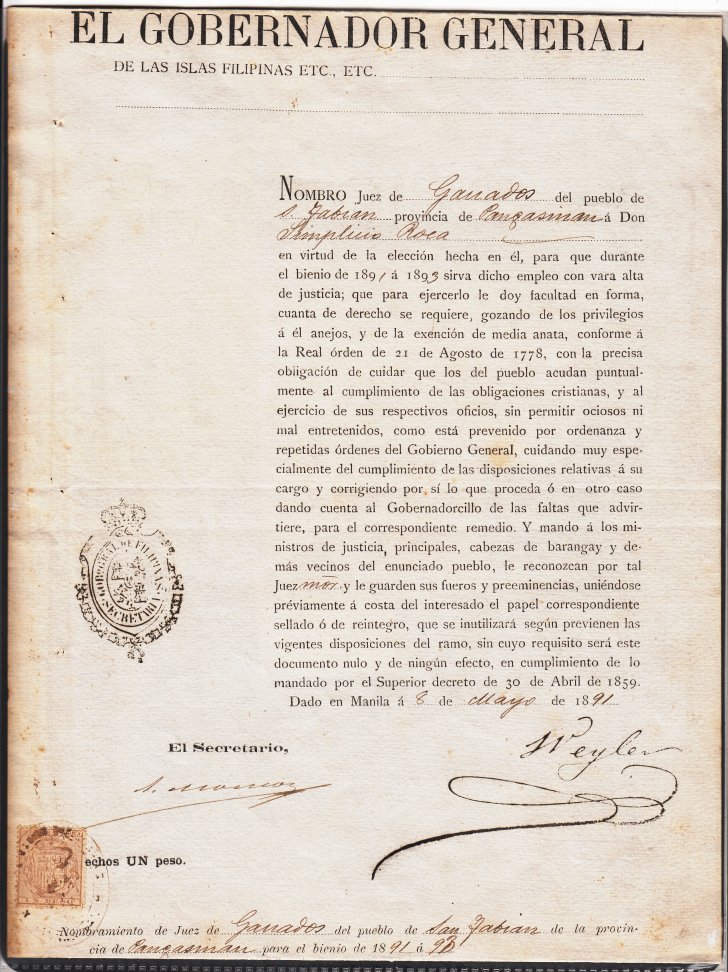 EL GOBERNADOR GENERAL
DE LAS ISLAS FILIPINAS ETC., ETC.
NOMBRO Juez de Ganados del pueblo de
S. Fabian provincia de Pangasinan á Don
Simplicio Roca
en virtud de la elección hecha en él, para que durante
el bienio de 1891 á 1893 sirva dicho empleo con vara alta
de justicia; que para ejercerlo le doy facultad en forma,
cuanta de derecho se requiere, gozando de los privilegios
á él anejos, y de la exención de media anata, conforme á
la Real órden de 21 de Agosto de 1778, con la precisa
obligación de cuidar que los del pueblo acudan puntual-
mente al cumplimiento de las obligaciones cristianas, y al
ejercicio de sus respectivos oficios, sin permitir ociosos ni
mal entretenidos, como está prevenido por ordenanza y
repetidas órdenes del Gobierno General, cuidando muy espe-
cialmente del cumplimiento de las disposiciones relativas á su
cargo y corrigiendo por sí lo que proceda ó en otro caso
dando cuenta al Gobernadorcillo de las faltas que advir-
tiere, para el correspondiente remedio. Y mando á los mi-
nistros de justicia, principales, cabezas de barangay y de-
más vecinos del enunciado pueblo, le reconozcan por tal
Juez mor. y le guarden sus fueros y preeminencias, uniéndose
préviamente á costa del interesado el papel correspondiente
sellado ó de reintegro, que se inutilizará según previenen las
vigentes disposiciones del ramo, sin cuyo requisito será este
documento nulo y de ningún efecto, en cumplimiento de lo
mandado por el Superior decreto de 30 de Abril de 1859.
Dado en Manila á 8 de Mayo de 1891
GOB. GRAL. DE FILIPINAS
SECRETARIA
El Secretario,
Weyler
echos UN peso.
UN PESO
Nombramiento de Juez de Ganados del pueblo de San Fabian de la provin-
cia de Pangasinan para el bienio de 1891 á 93